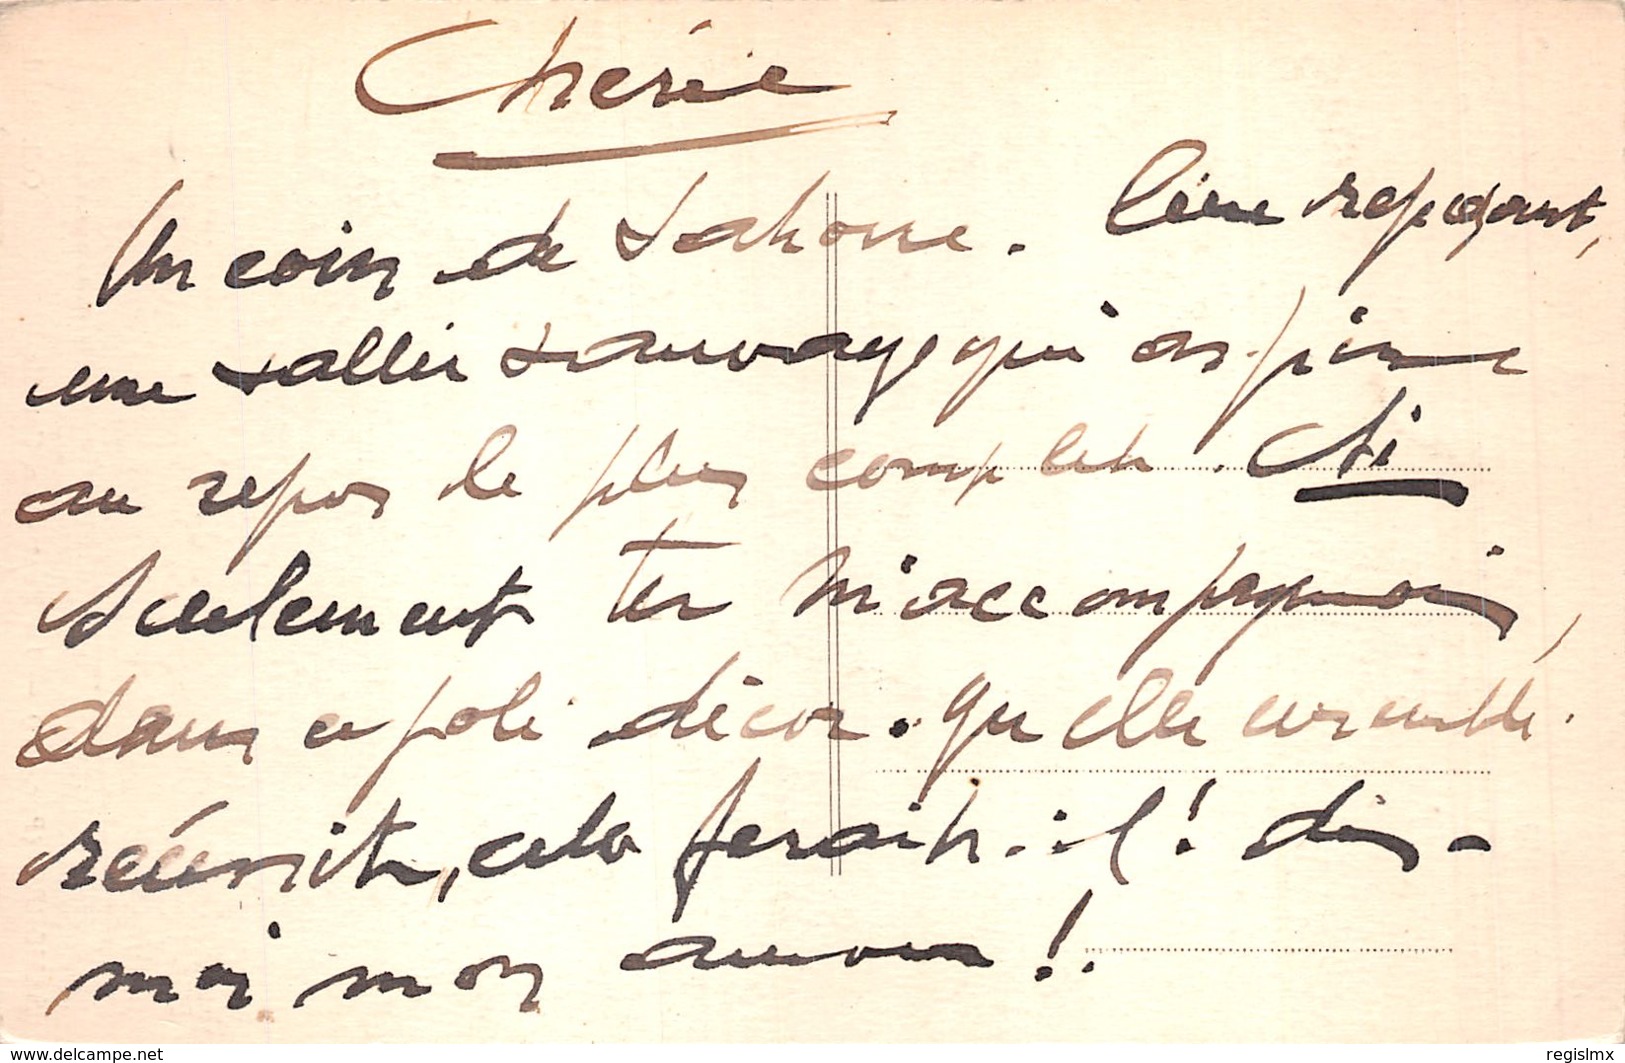 Chérie
Un coin de Lahorre. Coin reposant,
une vallée sauvage qui aspire
au repos le plus complet. Si
seulement tu m'accompagnais,
dans ce joli décor. Quelle ensemble
réunit, cela ferait-il! dis-
moi mon amour!.
www.delcampe.net
regislmx